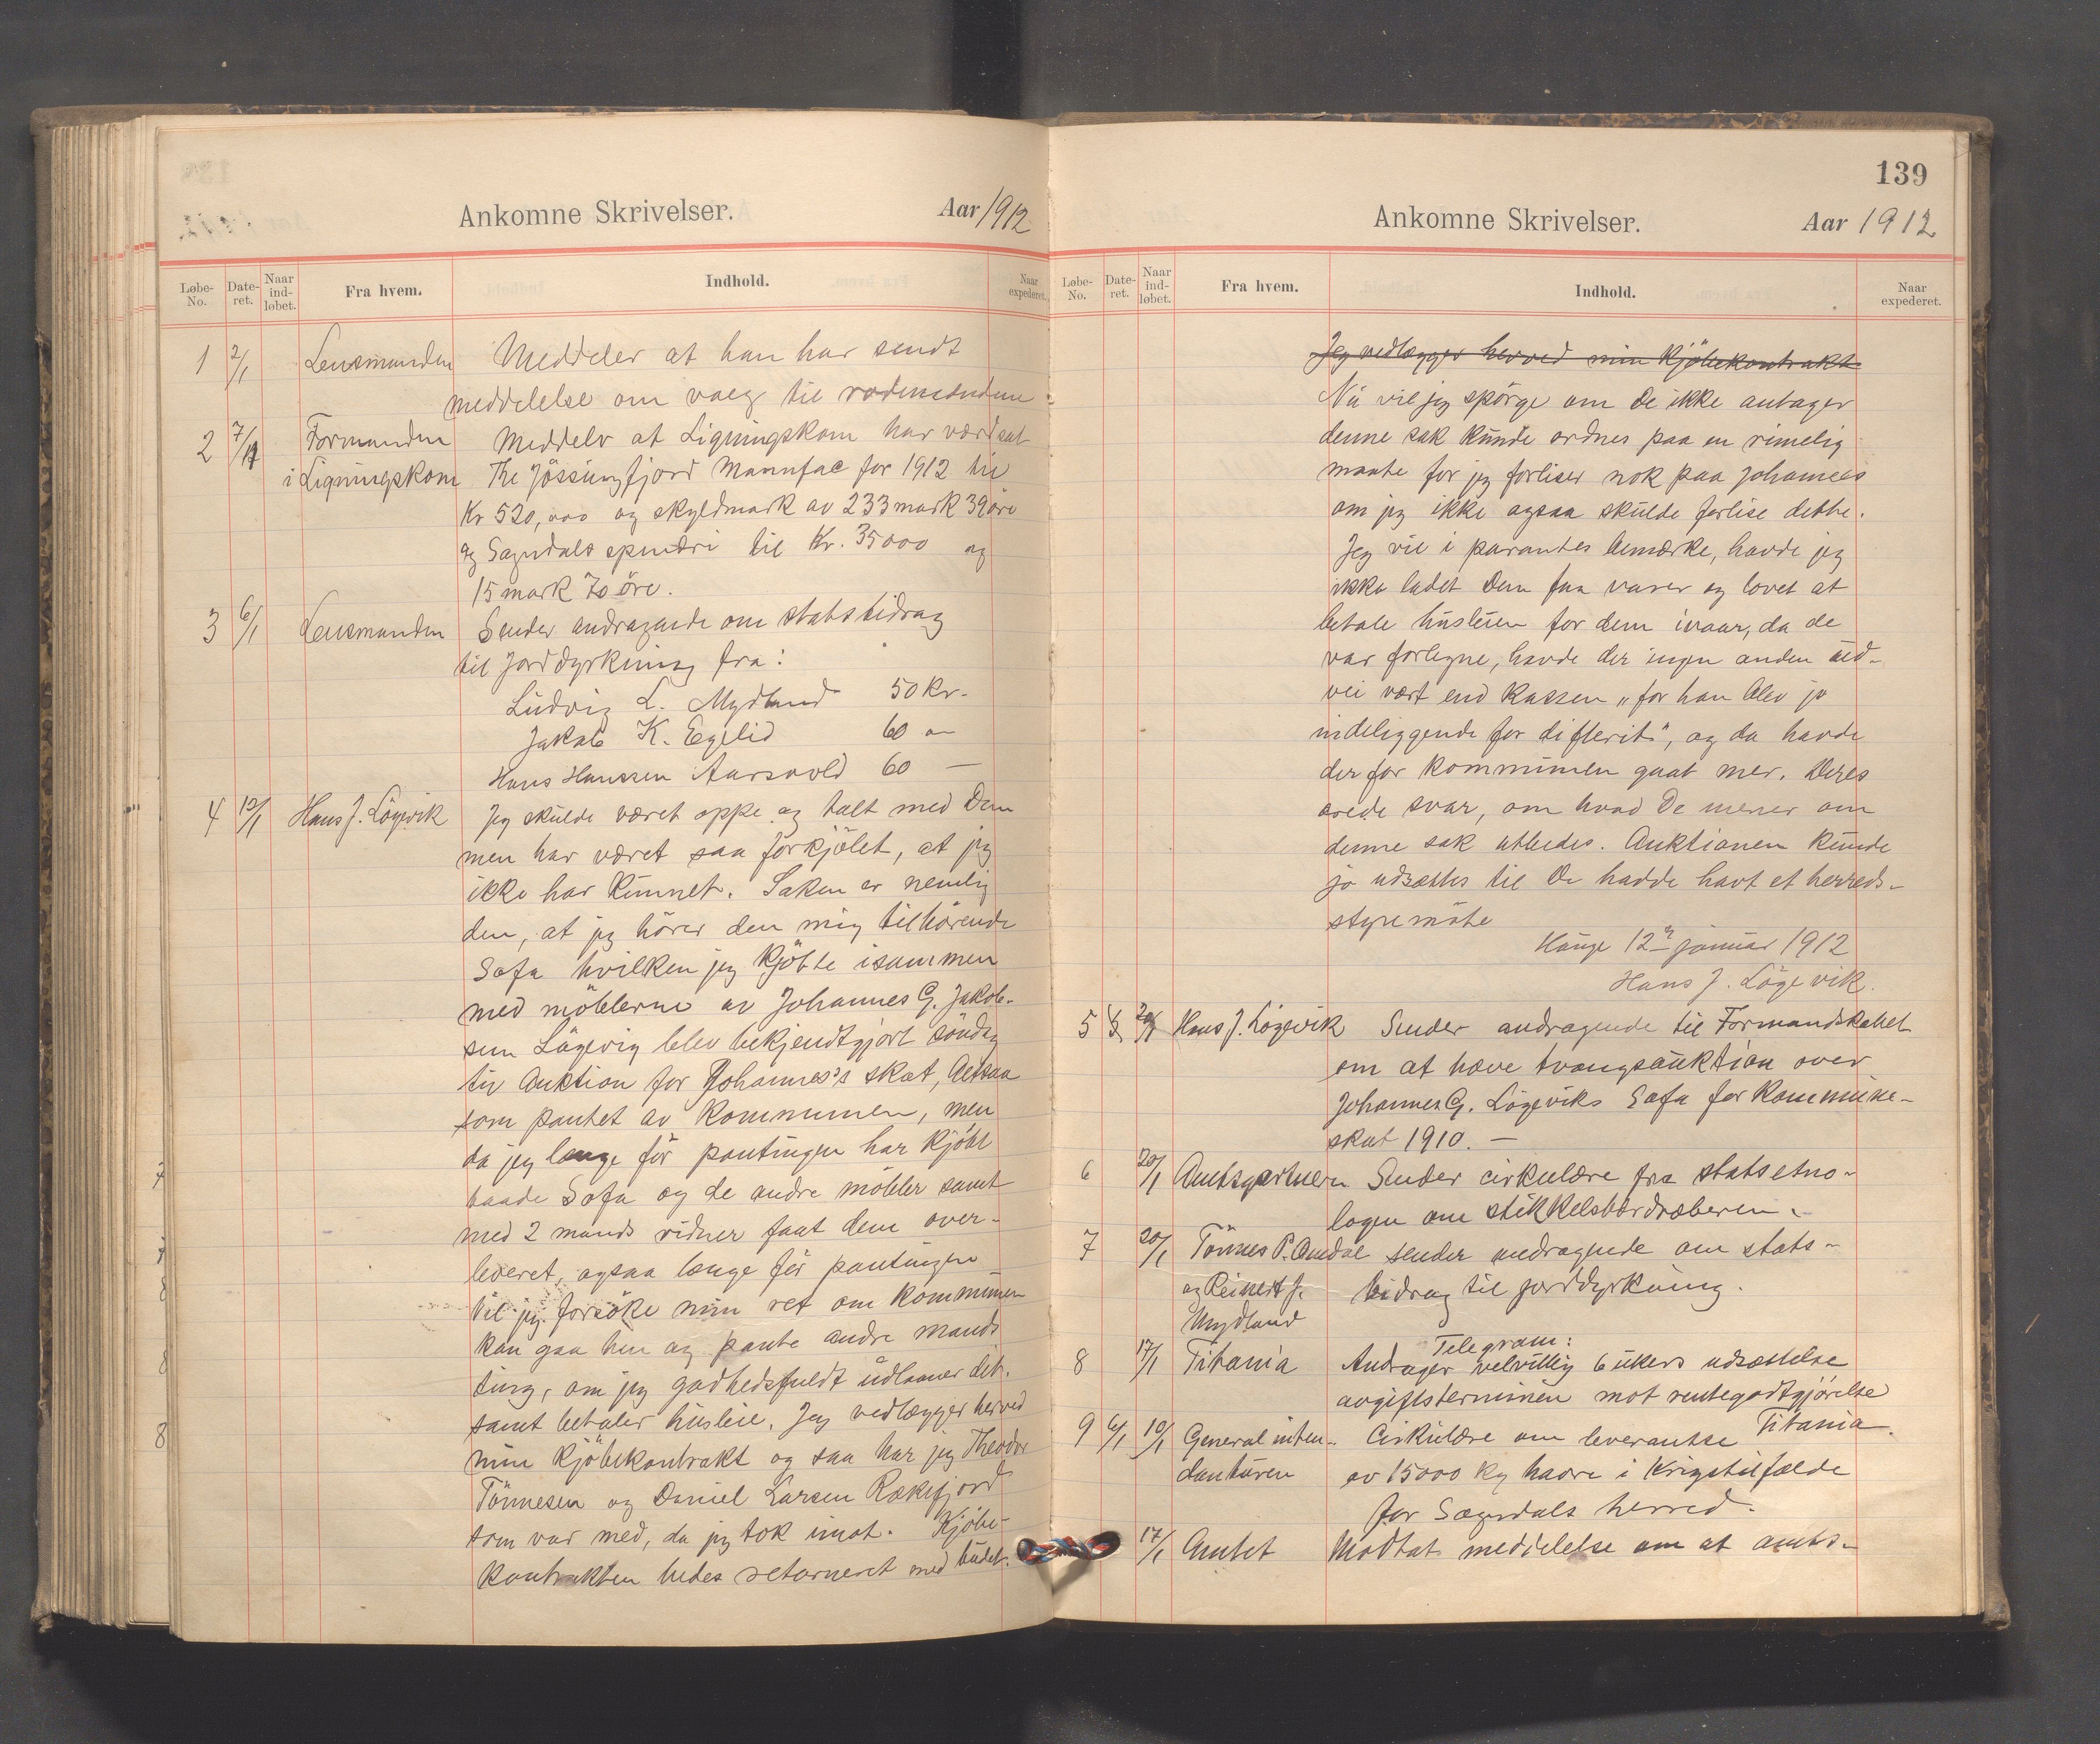 Ankomne Skrivelser. Aar 1912
Løbe-No. Date-ret. Naar ind-løbet. Fra hvem. Indhold. Naar expederet.
1 2/1 Lensmanden Meddeler at han har sendt
meddelelse om valg til rodemændene
2 7/1 Formanden Meddeler at Ligningskom har værdsat
i Ligningskom The Jössingfjord Manufac for 1912 til
Kr 520,000 og skyldmark av 233 mark 39 öre
og Sogndals spinderi til Kr. 35000 og
15 mark 70 öre.
3 6/1 Lensmanden Sender andragende om statsbidrag
til Jorddyrkning fra:
Ludvig L. Mydland 50 Kr.
Jakob K. Eglid 60 "
Hans Hanssen Aarsvold 60 —
4 12/1 Hans J. Lögevik Jeg skulde været oppe og talt med Dem
men har været saa forkjölet, at jeg
ikke har kunnet. Saken er nemlig
den, at jeg hörer den mig tilhörende
Sofa hvilken jeg kjöbte isammen
med möblerne av Johannes G. Jakob-
sen Lögevig blev bekjendtgjort söndag
til Auktion for Johannes's skat, Altsaa
som pantet av Kommunen, men
da jeg lenge för pantingen har kjöbt
baade Sofa og de andre möbler samt
med 2 mands vidner faat dem over-
leveret, ogsaa længe för pantingen
Vil jeg forsöke min ret om kommunen
kan gaa hen og pante andre mands
ting, om jeg godhedsfuldt udlaaner dit.
samt betaler husleie. Jeg vedlægger herved
min kjöbekontrakt og saa har jeg Theodor
Tönnesen og Daniel Larsen Rækefjord
som var med, da jeg tok imot. Kjöbe-
kontrakten bedes retorneret med budet.
139
Ankomne Skrivelser. Aar 1912
Løbe-No. Date-ret. Naar ind-løbet. Fra hvem. Indhold. Naar expederet.
Jeg vedlægger herved min Kjöbekontrakt
Nu vil jeg spörge om De ikke antager
denne sak kunde ordnes paa en rimelig
maate for jeg forliser nok paa Johannes
om jeg ikke ogsaa skulde forlise dette.
Jeg vil i parantes bemærke, havde jeg
ikke ladet dem faa varer og lovet at
betale husleien for dem ivaar, da de
var forlegne, havde der ingen anden ud-
vei vært end kassen „for han blev jo
indeliggende for difterit", og da havde
der for kommunen gaat mer. Deres
ærede svar, om hvad De mener om
denne sak utbedes. Auktionen kunde
jo udsættes til De hadde havt et herreds-
styremöte
Hauge 12te januar 1912
Hans J. Lögevik.
5 20/1 Hans J. Lögevik Sender andragende til Formandskabet
om at hæve tvangsauktion over
Johannes G. Lögeviks Sofa for Kommune-
skat 1910. —
6 20/1 Amtsgartneren Sender cirkulære fra statsetno-
logen om stikkelsbærdræberen.
7 20/1 Tönnes P. Amdal sender andragende om stats-
og Reinert J. bidrag til jorddyrkning.
Mydland
Telegram:
8 17/1 Titania Andrager velvillig 6 ukers udsættelse
avgiftsterminen mot rentegodtgjörelse
Titania.
9 6/1 10/1 Generalinten- Cirkulære om leverantse
danturen av 15000 kg havre i Krigstilfælde
for Sogndals herred.
17/1 Amtet Motat meddelelse om at amts-